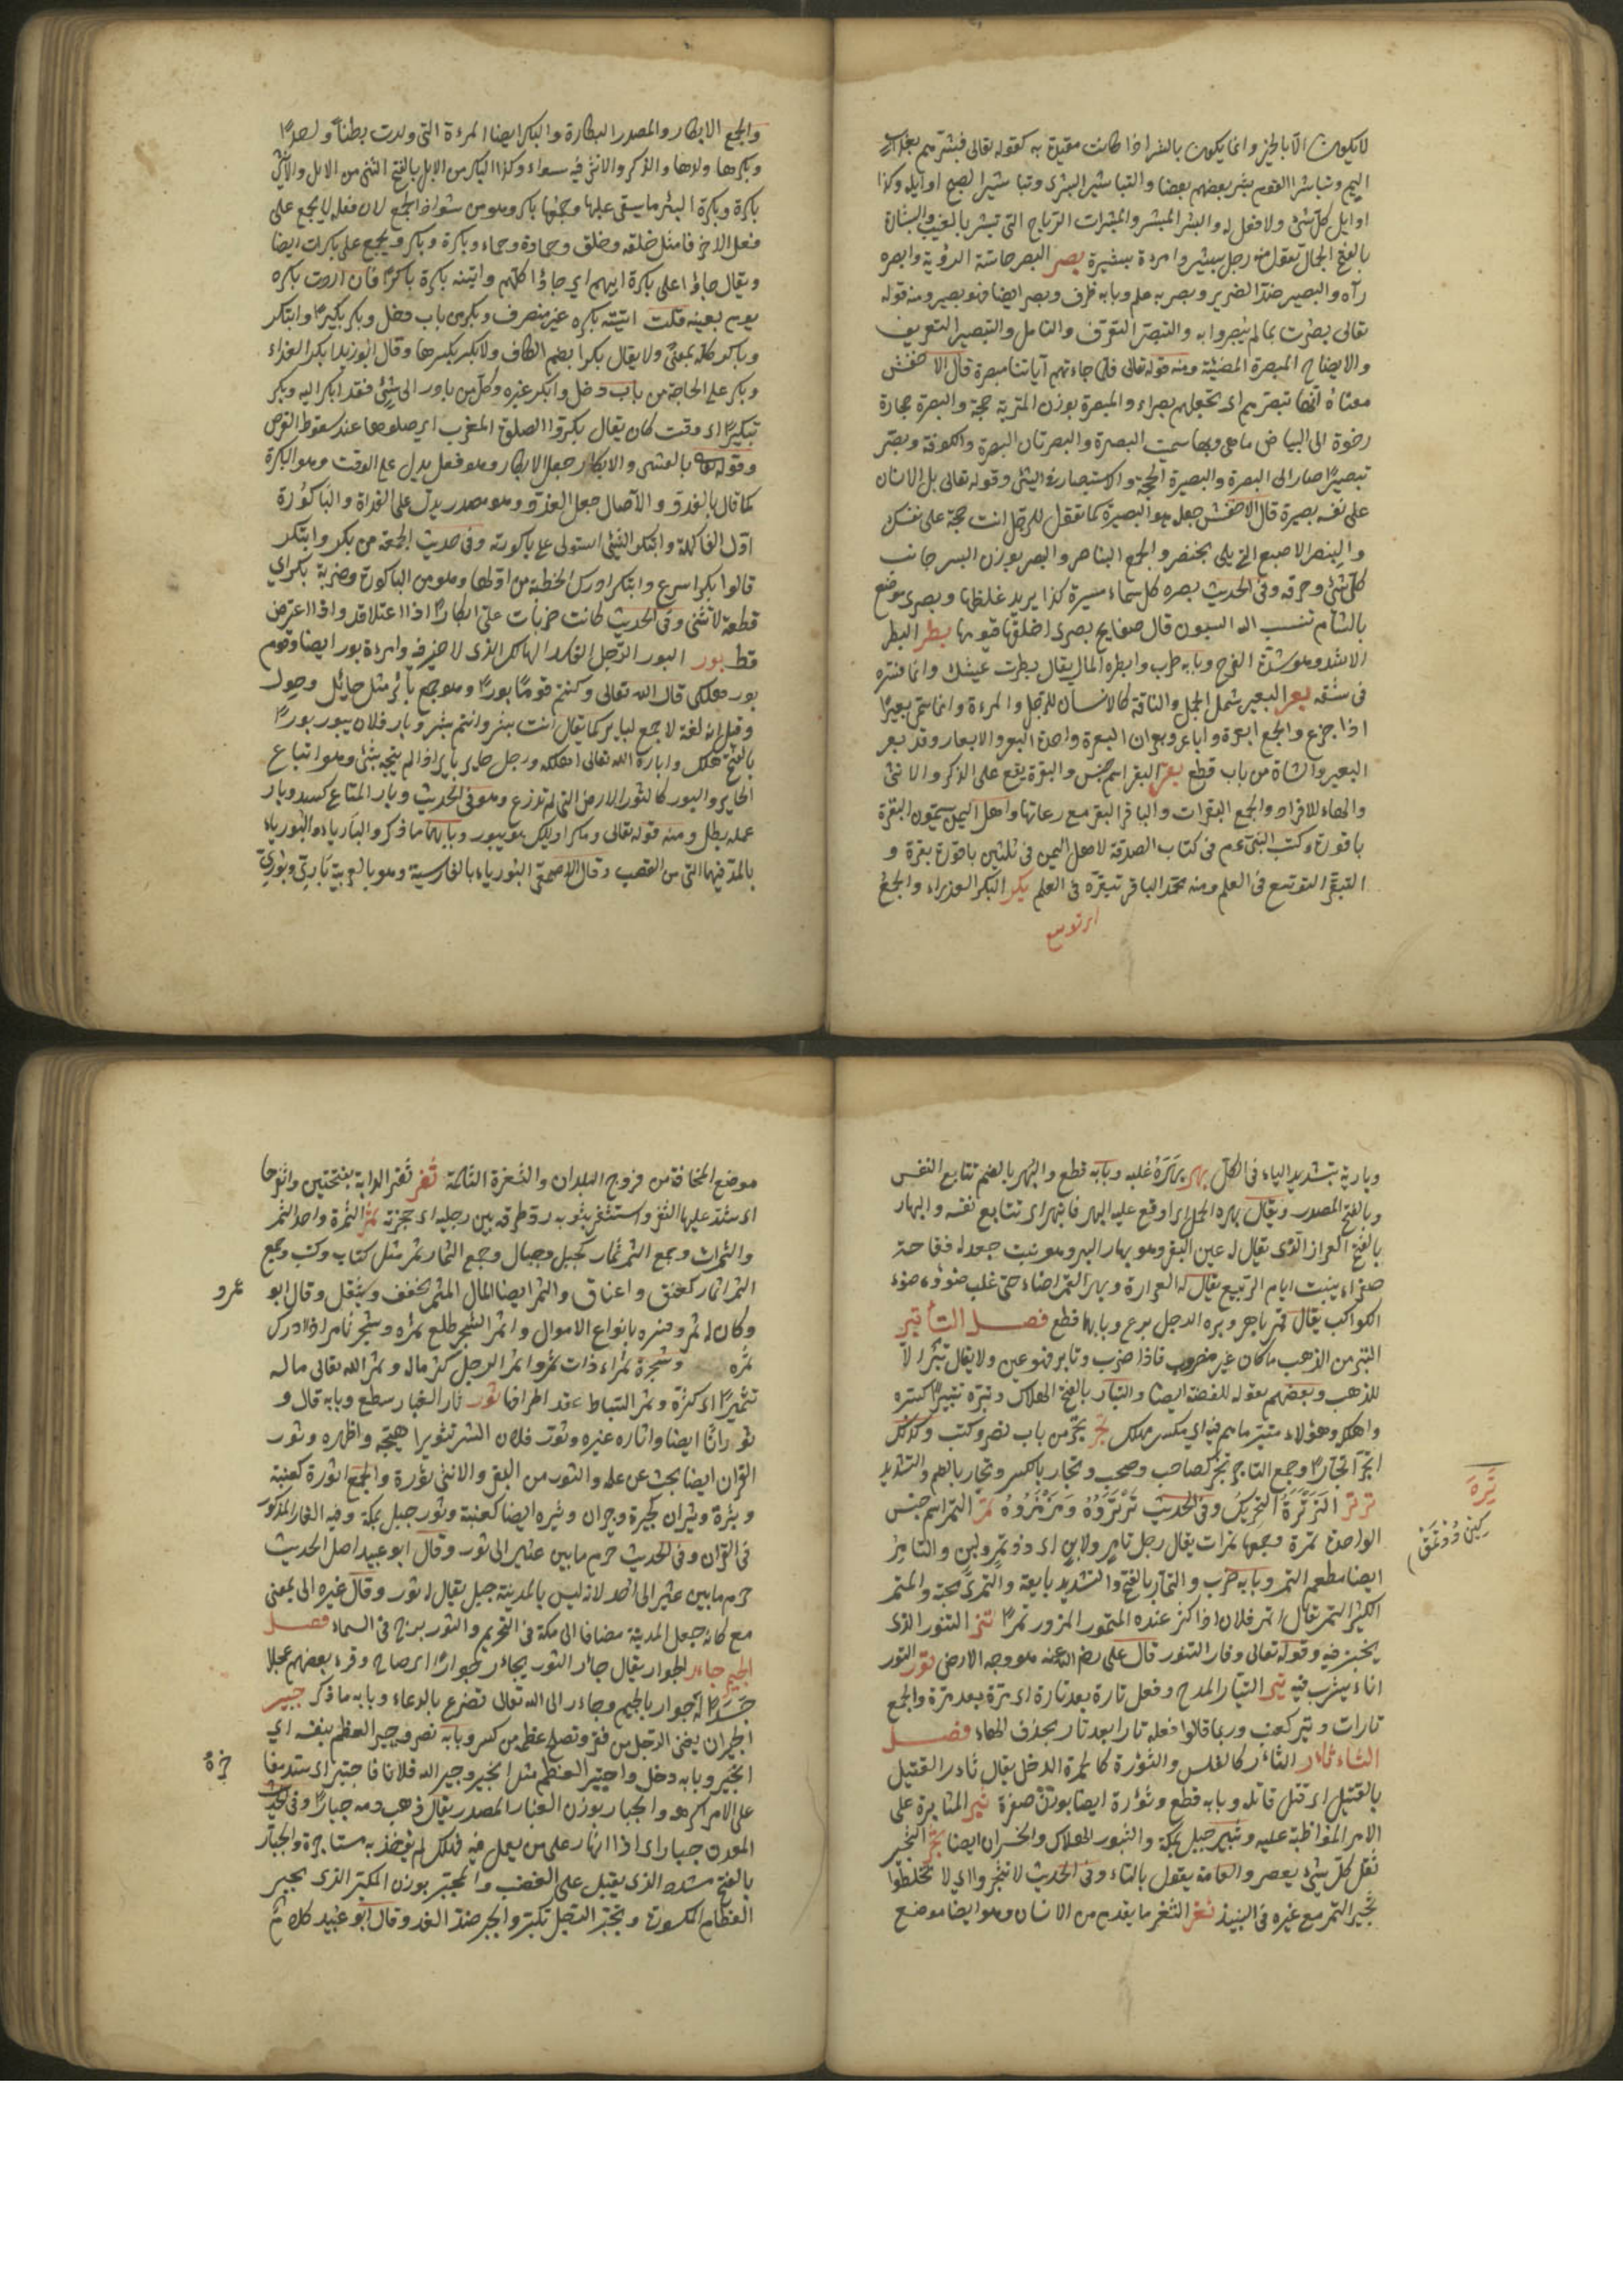 لا يكون الا بالخير وانما يكون بالشر اذا كانت مقيدة به كقوله تعالى فبشرهم بعذاب
اليم وتباشر القوم بشر بعضهم بعضا والتباشير البشرى وتباشير الصبح اوايله وكذا
اوايل كل شئ ولا فعل له والبشير المبشر والمبشرات الرياح التى تبشر بالغيث والبشارة
بالفتح الجمال تقول منه رجل بشير وامرءة بشيرة بصر البصر حاسة الرؤية وابصره
رآه والبصير ضد الضرير وبصر به علم وبابه ظرف وبصرا ايضا فهو بصير ومنه قوله
تعالى بصرت بما لم يبصروا به والتبصر التعرف والتامل والتبصير التعريف
والايضاح المبصرة المضيئة ومنه قوله تعالى فلما جاءتهم آياتنا مبصرة قال الاخفش
معناه انها تبصرهم اى تجعلهم بصراء والمبصرة بوزن المتربة حجة والبصرة حجارة
رخوة الى البياض ما هى وبها سميت البصرة والبصرتان البصرة والكوفة وبصر
تبصيرا صار الى البصرة والبصيرة الحجة والاستبصار فى الشئ وقوله تعالى بل الانسان
على نفسه بصيرة قال الاخفش جعله هو البصيرة كما تقول للرجل انت حجة على نفسك
والبنصر الاصبع التى يلى الخنصر والجمع البناصر والبصر بوزن البسر جانب
كل شئ وحرفه وفى الحديث بصره كل سماء مسيرة كذا يريد غلظها وبصرى موضع
بالشام تنسب اليه السيوف قال صفايح بصرى اخلصتها قيونها بطر البطر
الاشر وهو شدة الفرح وبابه طرب وابطره المال يقال بطرت عيشك وانما فسره
فى سفه بعر البعير شمل الجمل والناقة كالانسان للرجل والمرءة وانما سمى بعيرا
اذا جزع والجمع ابعرة واباعر وبعران البعرة واحدة البعر والابعار وقد بعر
البعير والشاة من باب قطع بقر البقر اسم جنس والبقرة يقع على الذكر والانثى
والهاء للافراد والجمع البقرات والباقر البقر مع رعاتها واهل اليمن يسمون البقرة
باقورة وكتب النبى عم فى كتاب الصدقة لاهل اليمن فى ثلثين باقورة بقرة و
التبقر التوسع فى العلم ومنه محمد الباقر لتبقره فى العلم بكر البكر العذراء والجمع
اى توسع
والجمع الابكار والمصدر البكارة والبكر ايضا المرءة التى ولدت بطنا واحدا
وبكرها ولدها والذكر والانثى فيه سواء وكذا البكر من الابل بالفتح الفتى من الابل والانثى
بكرة وبكرة البئر ما يستقى عليها وجمعها بكر وهو من شواذ الجمع لان فعلة لا يجمع على
فعل الا حرفا مثل حلقه وحلق وحمادة وحماء وبكرة وبكر ويجمع على بكرات ايضا
ويقال جاؤا على بكرة ابيهم اى جاؤا كلهم واتيته بكرة باكرا فان اردت بكره
يوم بعينه قلت اتيته بكره غير منصرف وبكر من باب دخل وبكر بكيرا وابتكر
وباكر كله بمعنى ولا يقال بكر بضم الكاف ولا بكر بكسرها وقال ابو زيد ابكر الغداء
وبكر على الحاجة من باب دخل وابكر غيره وكل من بادر الى شئ فقد ابكر اليه وبكر
تبكيرا اى وقت كان يقال بكروا الصلوة المغرب اى صلوها عند سقوط القرص
وقوله تعالى بالعشى والابكار جعل الابكار وهو فعل يدل على الوقت وهو البكرة
كما قال بالغدو والآصال جعل الغدو وهو مصدر يدل على الغداة والباكورة
اول الفاكهة وابتكر الشئ استولى على باكورته وفى حديث الجمعة من بكر وابتكر
قالوا بكر اسرع وابتكر ادرك الخطبة من اولها وهو من الباكورة وضربة بكر اى
قطعة لا تثنى وفى الحديث كانت ضربات على ابكارا اذا اعتلا قد واذا اعترض
قط بور البور الرجل الفاسد الهالك الذى لا خير فيه وامرءة بور ايضا وقوم
بور هلكى قال الله تعالى وكنتم قوما بورا وهو جمع بائر مثل حائل وحول
وقيل انه لغة لا جمع لباير كما يقال انت بشر وانتم بشر وبار فلان يبور بورا
بالفتح هلك وابارة الله تعالى اهلكه ورجل حاير باير اذا لم يتجه بشئ وهو اتباع
الحاير والبور كالثور الارض التى لم تزرع وهو فى الحديث وبار المتاع كسد وبار
عمله بطل ومنه قوله تعالى ومكر اولئك هو يبور وبابهما ما ذكر والبارياء والبورياء
بالمد فيهما التى من القصب وقال الاصمعى البورياء بالفارسية وهو بالعربية بارى وبورى
وبارية بتشديد الياء فى الكل بهر بهره غلبه وبابه قطع والبهر بالضم تتابع النفس
وبالفتح المصدر ويقال بهره الحمل اى اوقع عليه البهر فانبهر اى تتابع نفسه والبهار
بالفتح العرار الذى يقال له عين البقر وهو بهار البر وهو نبت جعد له فقاحة
صفراء ينبت ايام الربيع يقال له العرارة وبهر القمر اضاء حتى غلب ضوؤه ضوء
الكواكب يقال قمر باهر وبهره الرجل برع وبابها قطع فصل التاء تبر
التبر من الذهب ما كان غير مضروب فاذا ضرب دنانير فهو عين ولا يقال تبر الا
للذهب وبعضهم يقوله للفضة ايضا والتبار بالفتح الهلاك وتبره تتبيرا كسره
واهلكه وهؤلاء متبر ما هم فيه اى مكسر مهلك تجر تجر من باب نصر وكتب وكذلك
اتجر اتجارا وجمع التاجر تجر كصاحب وصحب وتجار بالكسر وتجار بالضم والتشديد
ترتر الترترة التحريك وفى الحديث ترتروه ومزمزوه تمر التمر اسم جنس
الواحدة تمرة وجمعها تمرات يقال رجل تامر ولابن اى ذو تمر ولبن والتامر
ايضا مطعم التمر وبابه ضرب والتمار بالفتح والتشديد بايعه والتمرى محبه والمتمر
الكثير التمر يقال اتمر فلان اذا كثر عنده التمر والمتمور المزود تمرا تنر التنور الذى
يخبز فيه وقوله تعالى وفار التنور قال على رضى الله عنه هو وجه الارض تور التور
اناء يشرب فيه تير التيار الموج وفعل تارة بعد تارة اى مرة بعد مرة والجمع
تارات وتير كعنب وربما قالوا فعله تارا بعد تار بحذف الهاء فصل
الثاء ثاءر الثاءر كالفلس والثؤرة كالحمرة الدخل يقال ثادر القتيل
بالقتيل اى قتل قاتله وبابه قطع وثؤرة ايضا بوزن صفرة ثبر المثابرة على
الامر المواظبة عليه وثبير جبل بمكة والثبور الهلاك والخسران ايضا ثجر الثجير
ثفل كل شئ يعصر والعامة يقول بالتاء وفى الحديث لا تثجروا اى لا تخلطوا
ثجير التمر مع غيره فى النبيذ ثغر الثغر ما يقدم من الاسنان وهو ايضا موضع
تره
موضع المخافة من فروج البلدان والثغرة الثلمة ثفر ثفر الدابة بفتحتين واثفرها
اى شد عليها الثفر واستثفر بثوبه رد طرفه بين رجليه اى حجزته ثمر الثمرة واحد الثمر
والثمرات وجمع الثمر ثمار كجبل وجبال وجمع الثمار ثمر مثل كتاب وكتب وجمع
الثمر اثمار كعنق واعناق والثمر ايضا المال المثمر يخفف ويثقل وقال ابو عمرو
وكان له ثمر وفسره بانواع الاموال واثمر الشجر طلع ثمره وشجر ثامر اذا ادرك
ثمره وشجرة ثمراء ذات ثمر واثمر الرجل كثر ماله وثمر الله تعالى ماله
تثميرا اى كثره وثمر السياط عقد اطرافها ثور ثار الغبار سطع وبابه قال و
ثورانا ايضا واثاره غيره وثور فلان الشر تثويرا هيجه واظهره وثور
القران ايضا بحث عن علمه والثور من البقر والانثى ثورة والجمع ثورة كعنبة
وثيرة وثيران كجيرة وجيران وثيره ايضا كعنبة وثور جبل بمكة وفيه الغار المذكور
فى القران وفى الحديث حرم ما بين عير الى ثور وقال ابو عبيد اصل الحديث
حرم ما بين عير الى احد لانه ليس بالمدينة جبل يقال له ثور وقال غيره الى بمعنى
مع كانه جعل المدينة مضافا الى مكة فى التحريم والثور برج فى السماء فصل
الجيم جاءر الجوار يقال جائر الثور يجائر جوارا اى صاح وقرء بعضهم عجلا
جسدا له جوار بالجيم وجاءر الى الله تعالى تضرع بالدعاء وبابه ما ذكر جبر
الجبر ان يغنى الرجل من فقر وتصلح عظمه من كسر وبابه نصر وجبر العظم بنفسه اى
انجبر وبابه دخل واجتبر العظم مثل انجبر وجبر الله فلانا فاجتبر اى سد مفاقره
على الامر اكرهه والجبار بوزن الغبار المصدر يقال ذهب دمه جبارا وفى الحديث
المعدن جبار اى اذا انهار على من يعمل فيه فهلك لم يؤخذ به مستاجره والجبار
بالفتح مشدد الذى يقتل على الغضب والمجبر بوزن المكبر الذى يجبر
العظام المكسورة وتجبر الرجل تكبر والجبر ضد القدر وقال ابو عبيد كلام